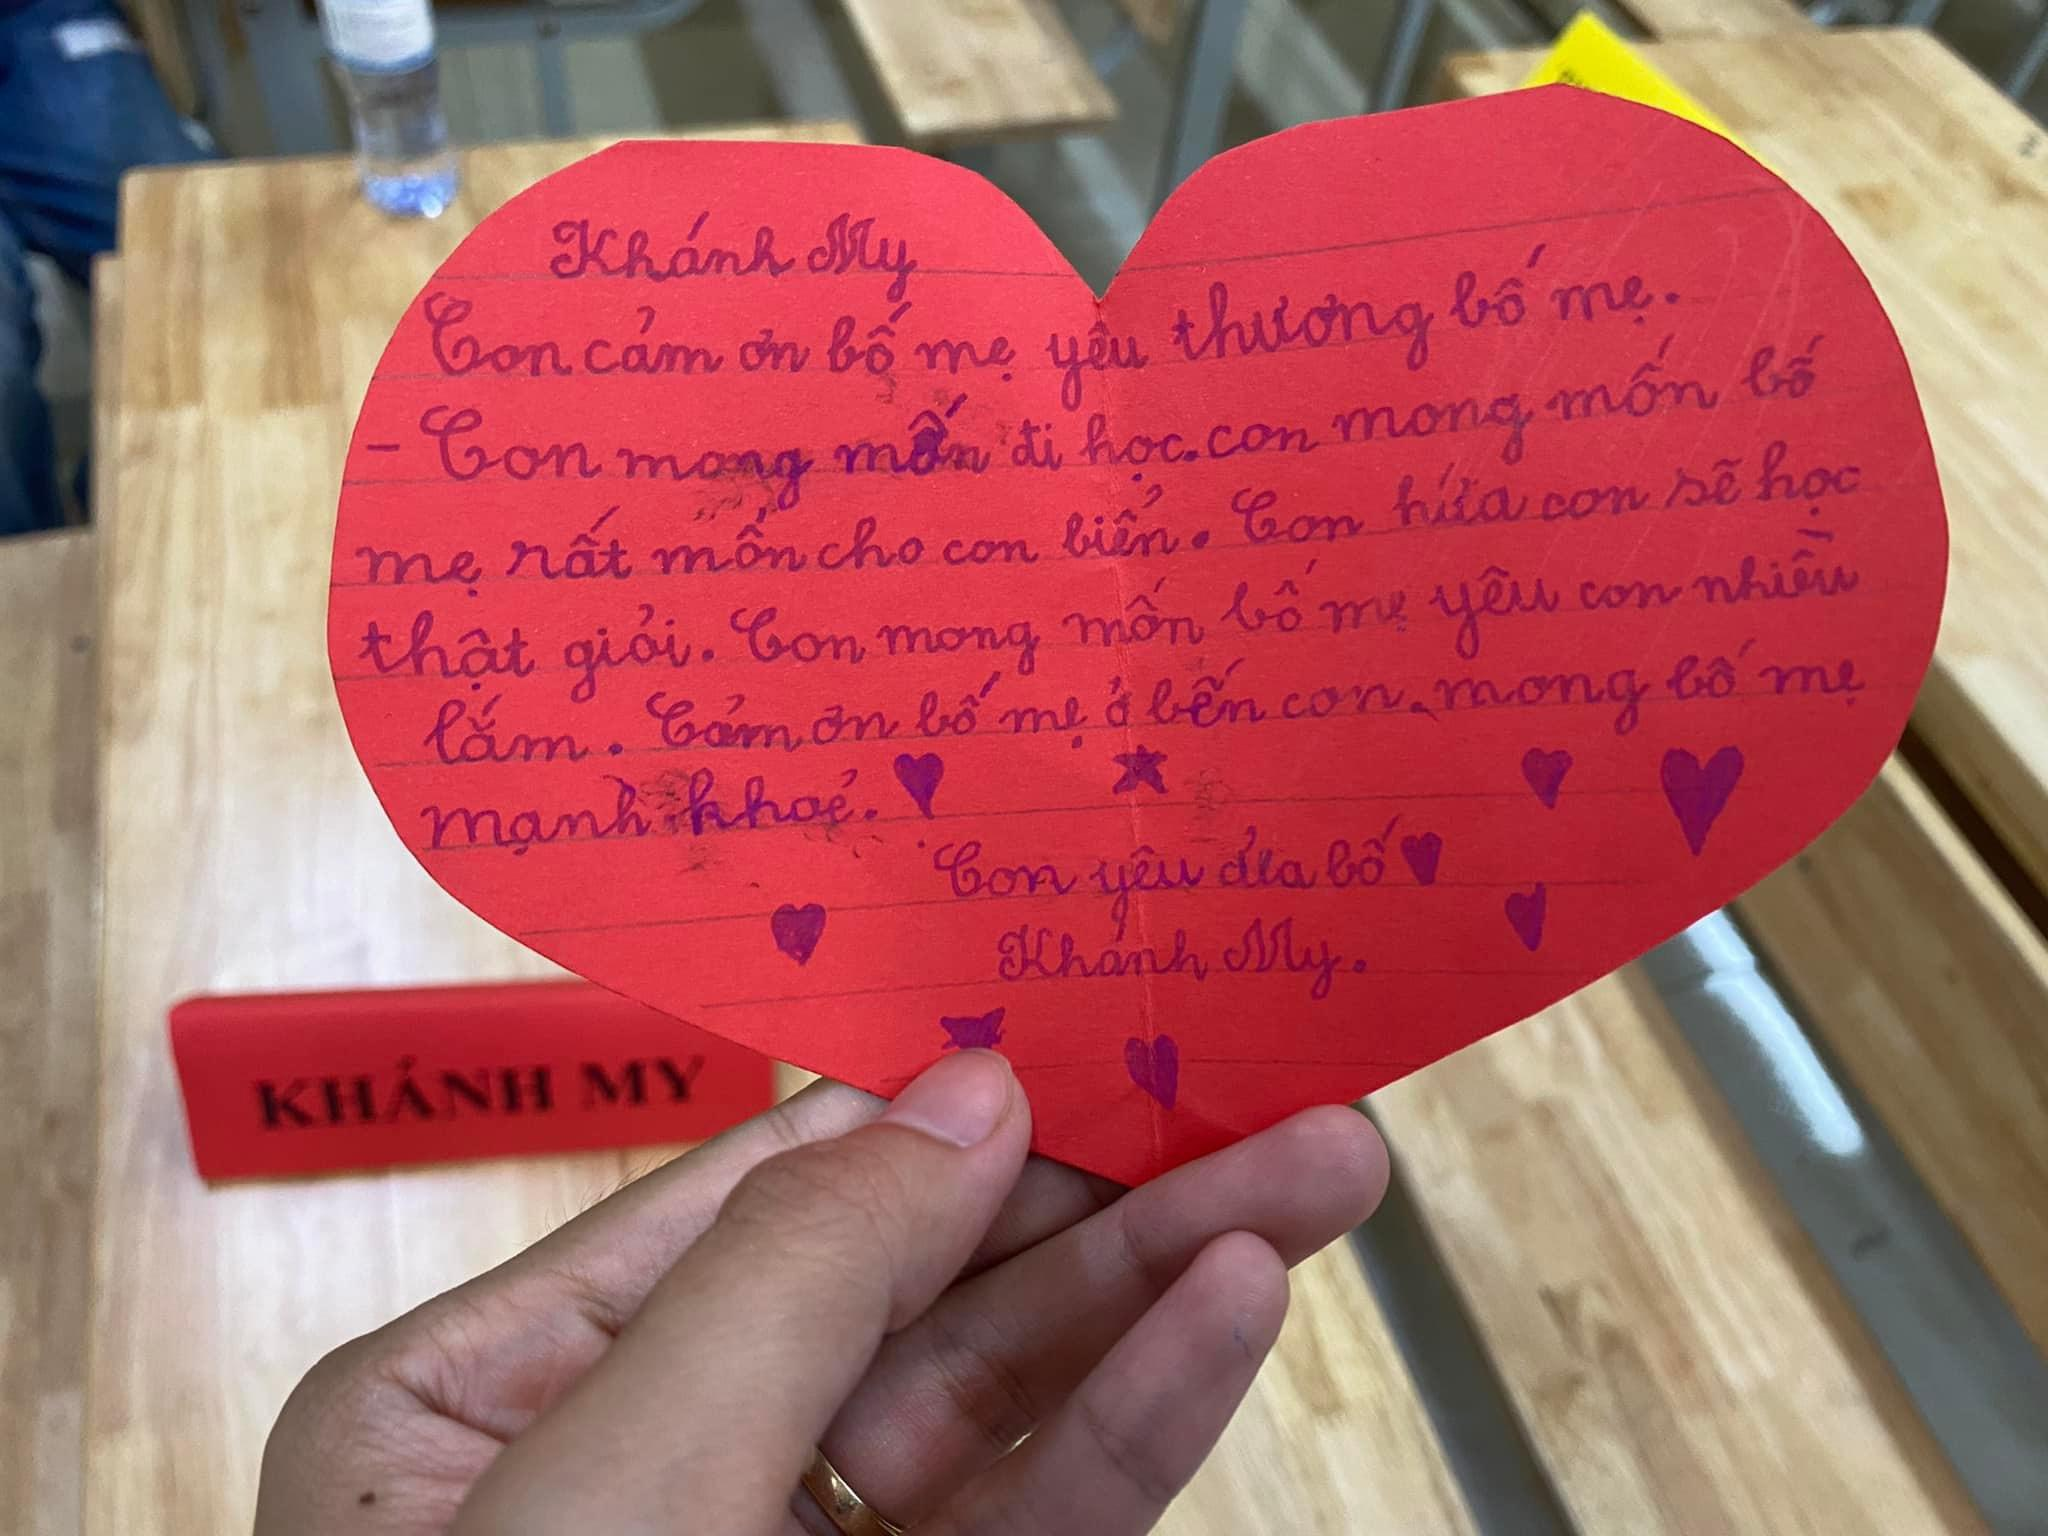 Khánh My
Con cảm ơn bố mẹ yêu thương bố mẹ.
- Con mong mốn đi học. con mong mốn bố
mẹ rất mốn cho con biển. Con hứa con sẽ học
thật giỏi. Con mong mốn bố mẹ yêu con nhiều
lắm. Cảm ơn bố mẹ ở bến con. mong bố mẹ
mạnh khoẻ.
Con yêu của bố
Khánh My.
KHÁNH MY